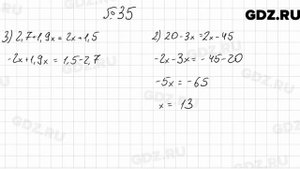 №35
GDZ.RU
3) 2,7+1,9x=2x+1,5
-2x+1,9x = 1,5-2,7
2) 20-3x=2x-45
-2x-3x=-45-20
-5x=-65
x= 13